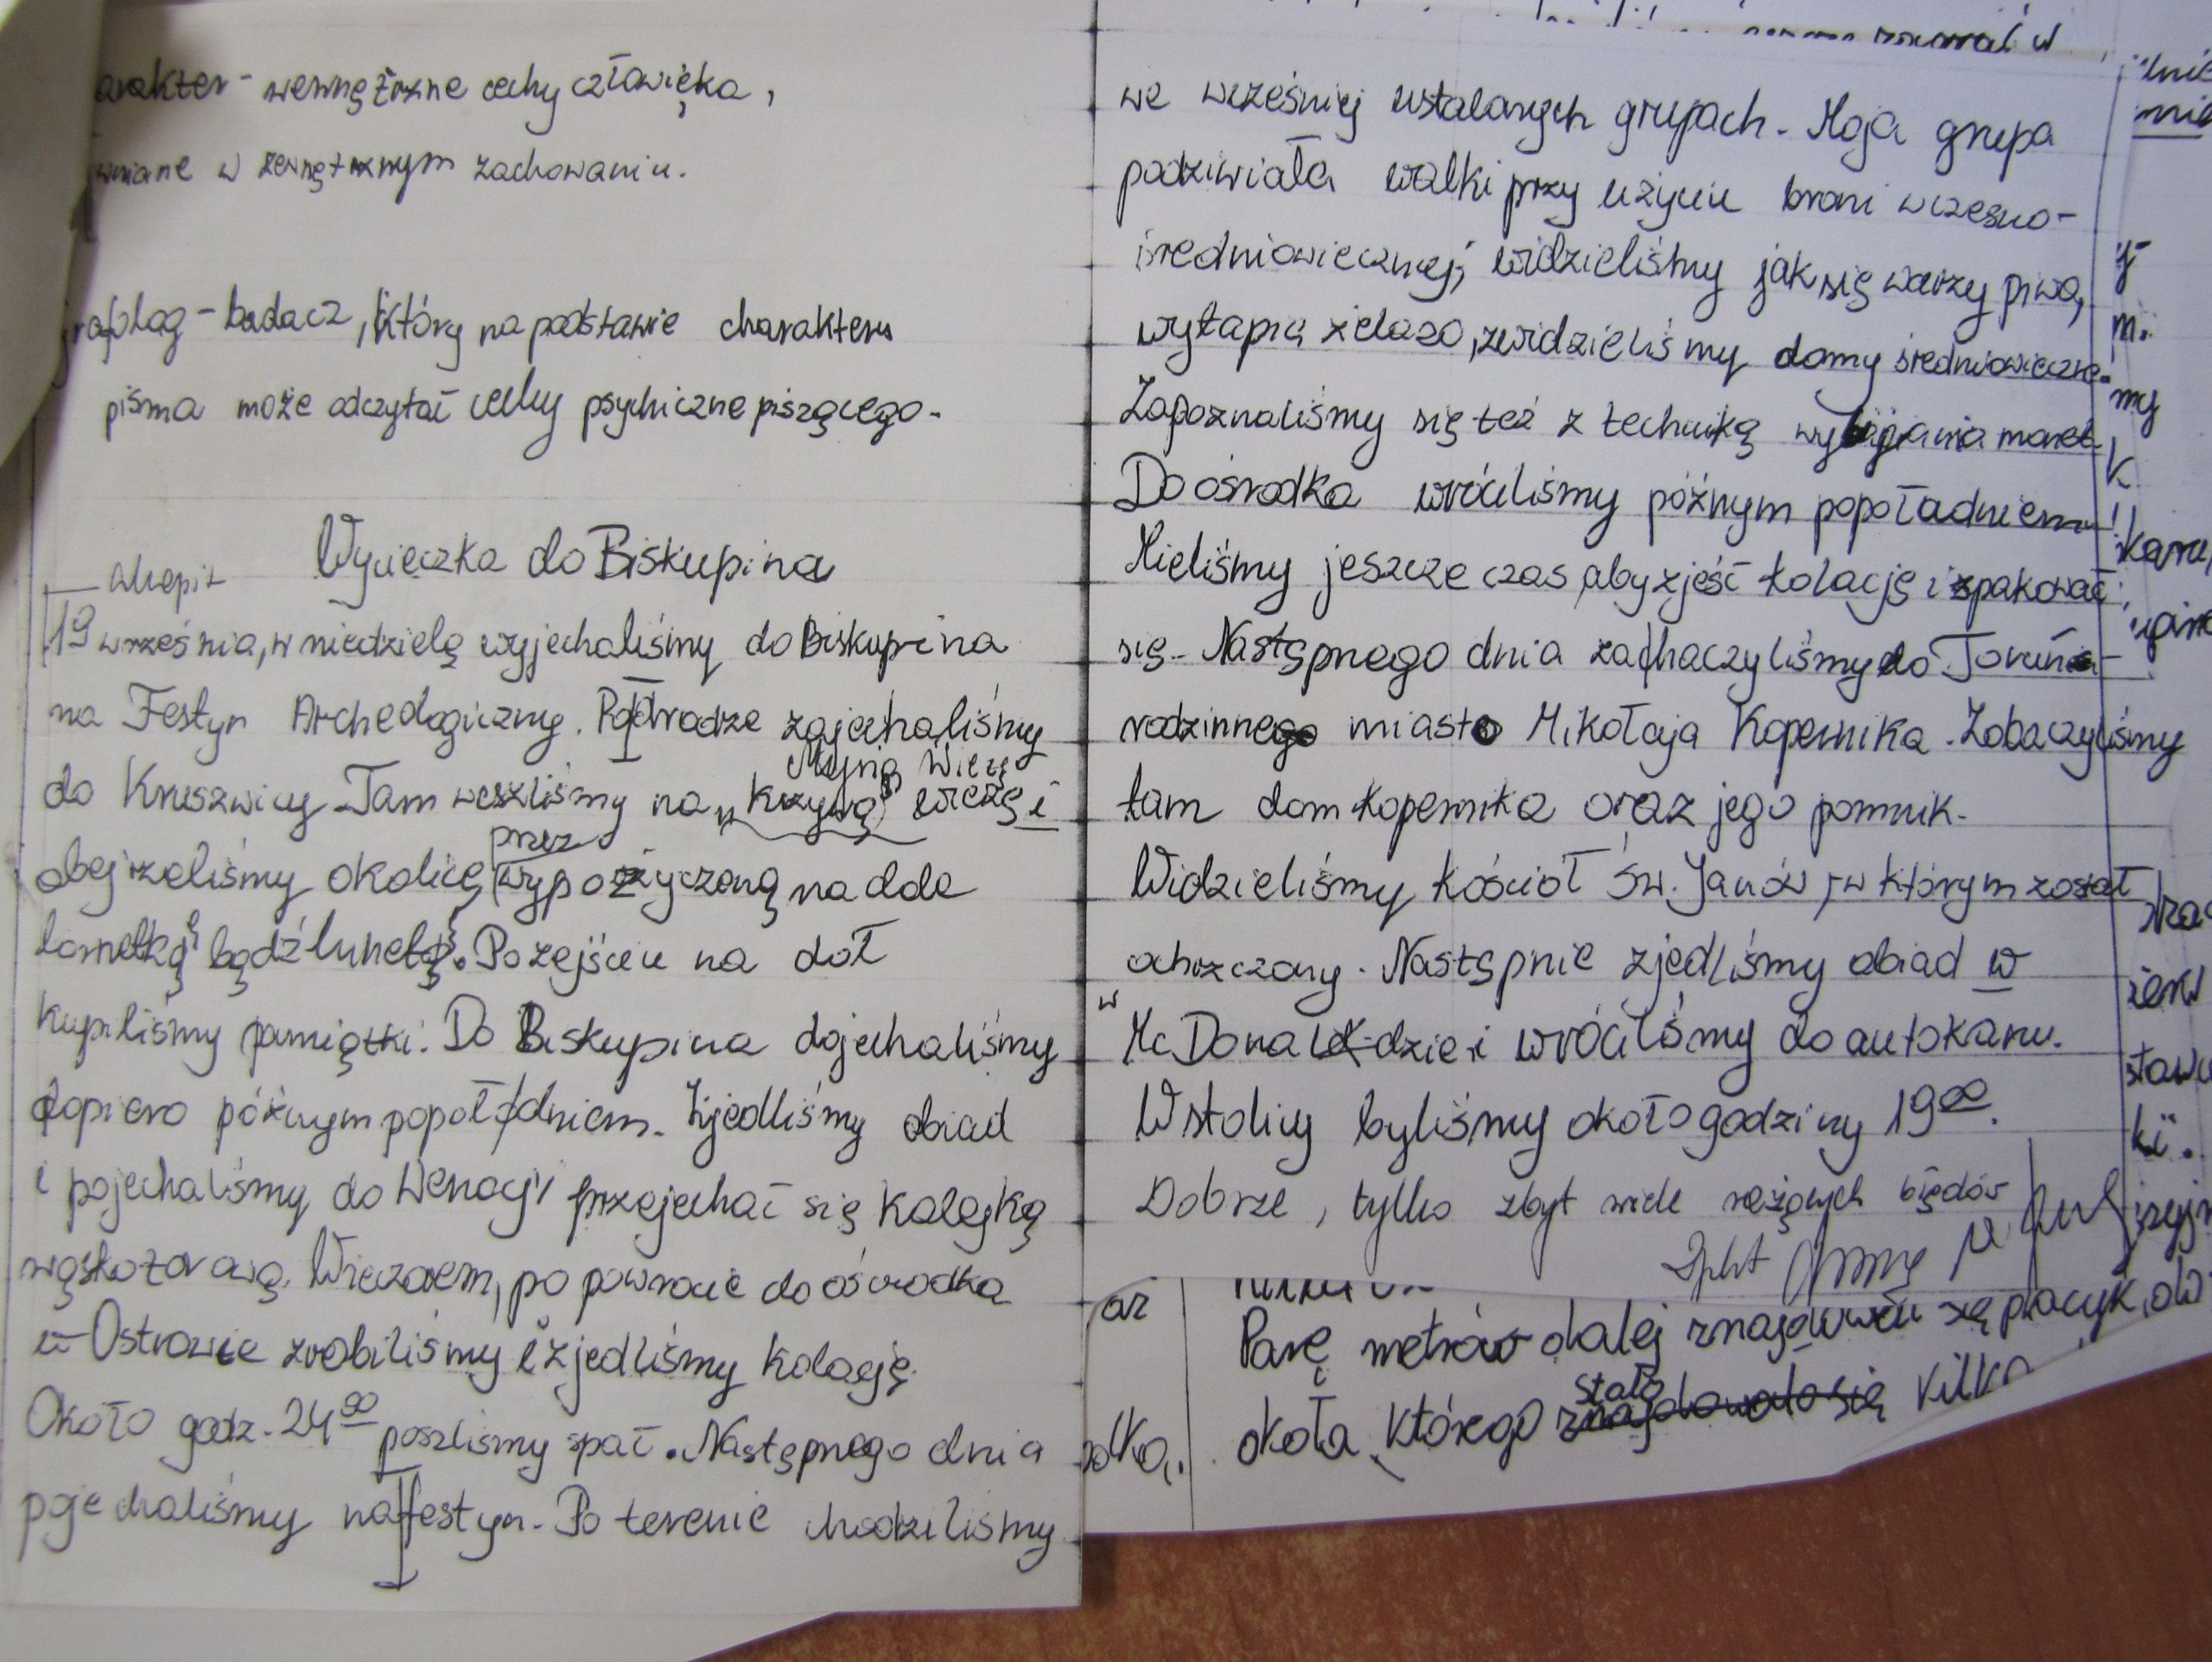 arakter - wewnętrzne cechy człowieka,
w zewnętrznym zachowaniu.
grafolog - badacz, który na podstawie charakteru
pisma może odczytać cechy psychiczne piszącego.
Wycieczka do Biskupina
akapit
19 września, w niedzielę wyjechaliśmy do Biskupina
na Festyn Archeologiczny. Po drodze zajechaliśmy
Mysią Wieżę
do Kruszwicy. Tam weszliśmy na „Krzywą" wieżę i
przez
obejrzeliśmy okolicę wypożyczoną na dole
lornetkę bądź lunetę. Po zejściu na dół
kupiliśmy pamiątki. Do Biskupina dojechaliśmy
dopiero późnym popołudniem. Zjedliśmy obiad
i pojechaliśmy do Wenecji przejechać się kolejką
wąskotorową. Wieczorem, po powrocie do ośrodka
w Ostrowie zrobiliśmy i zjedliśmy kolację.
Około godz. 24 00 poszliśmy spać. Następnego dnia
pojechaliśmy na festyn. Po terenie chodziliśmy
we wcześniej ustalonych grupach. Moja grupa
podziwiała walki przy użyciu broni wczesno-
średniowiecznej, widzieliśmy jak się warzy piwo,
wytapia żelazo, zwidzieliśmy domy średniowieczne.
Zapoznaliśmy się też z techniką wybijania monet
Do ośrodka wróciliśmy późnym popołudniem
Mieliśmy jeszcze czas, aby zjeść kolację i spakować
się. Następnego dnia zachaczyliśmy do Torunia-
rodzinnego miasta Mikołaja Kopernika. Zobaczyliśmy
tam dom Kopernika oraz jego pomnik.
Widzieliśmy kościół Św. Janów, w którym został
ochrzczony. Następnie zjedliśmy obiad w
w Mc Donaldzie i wróciliśmy do autokaru.
W stolicy byliśmy około godziny 19 00.
Dobrze, tylko zbyt wiele rażących błędów
Parę metrów dalej znajdował się placyk,
stało
okoła, którego znajdowało się kilka